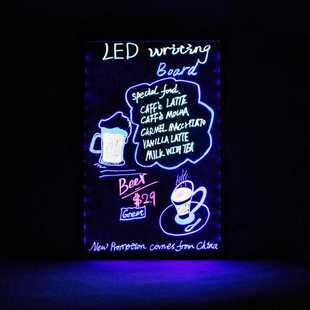 LED writing
Board
special food.
CAFFe LATTE
CAFFe MOCHA
CARMEL MACCHIATO
VANILLA LATTE
MILK WITH TEA
Beer
$29
Great
New Promotion comes from China